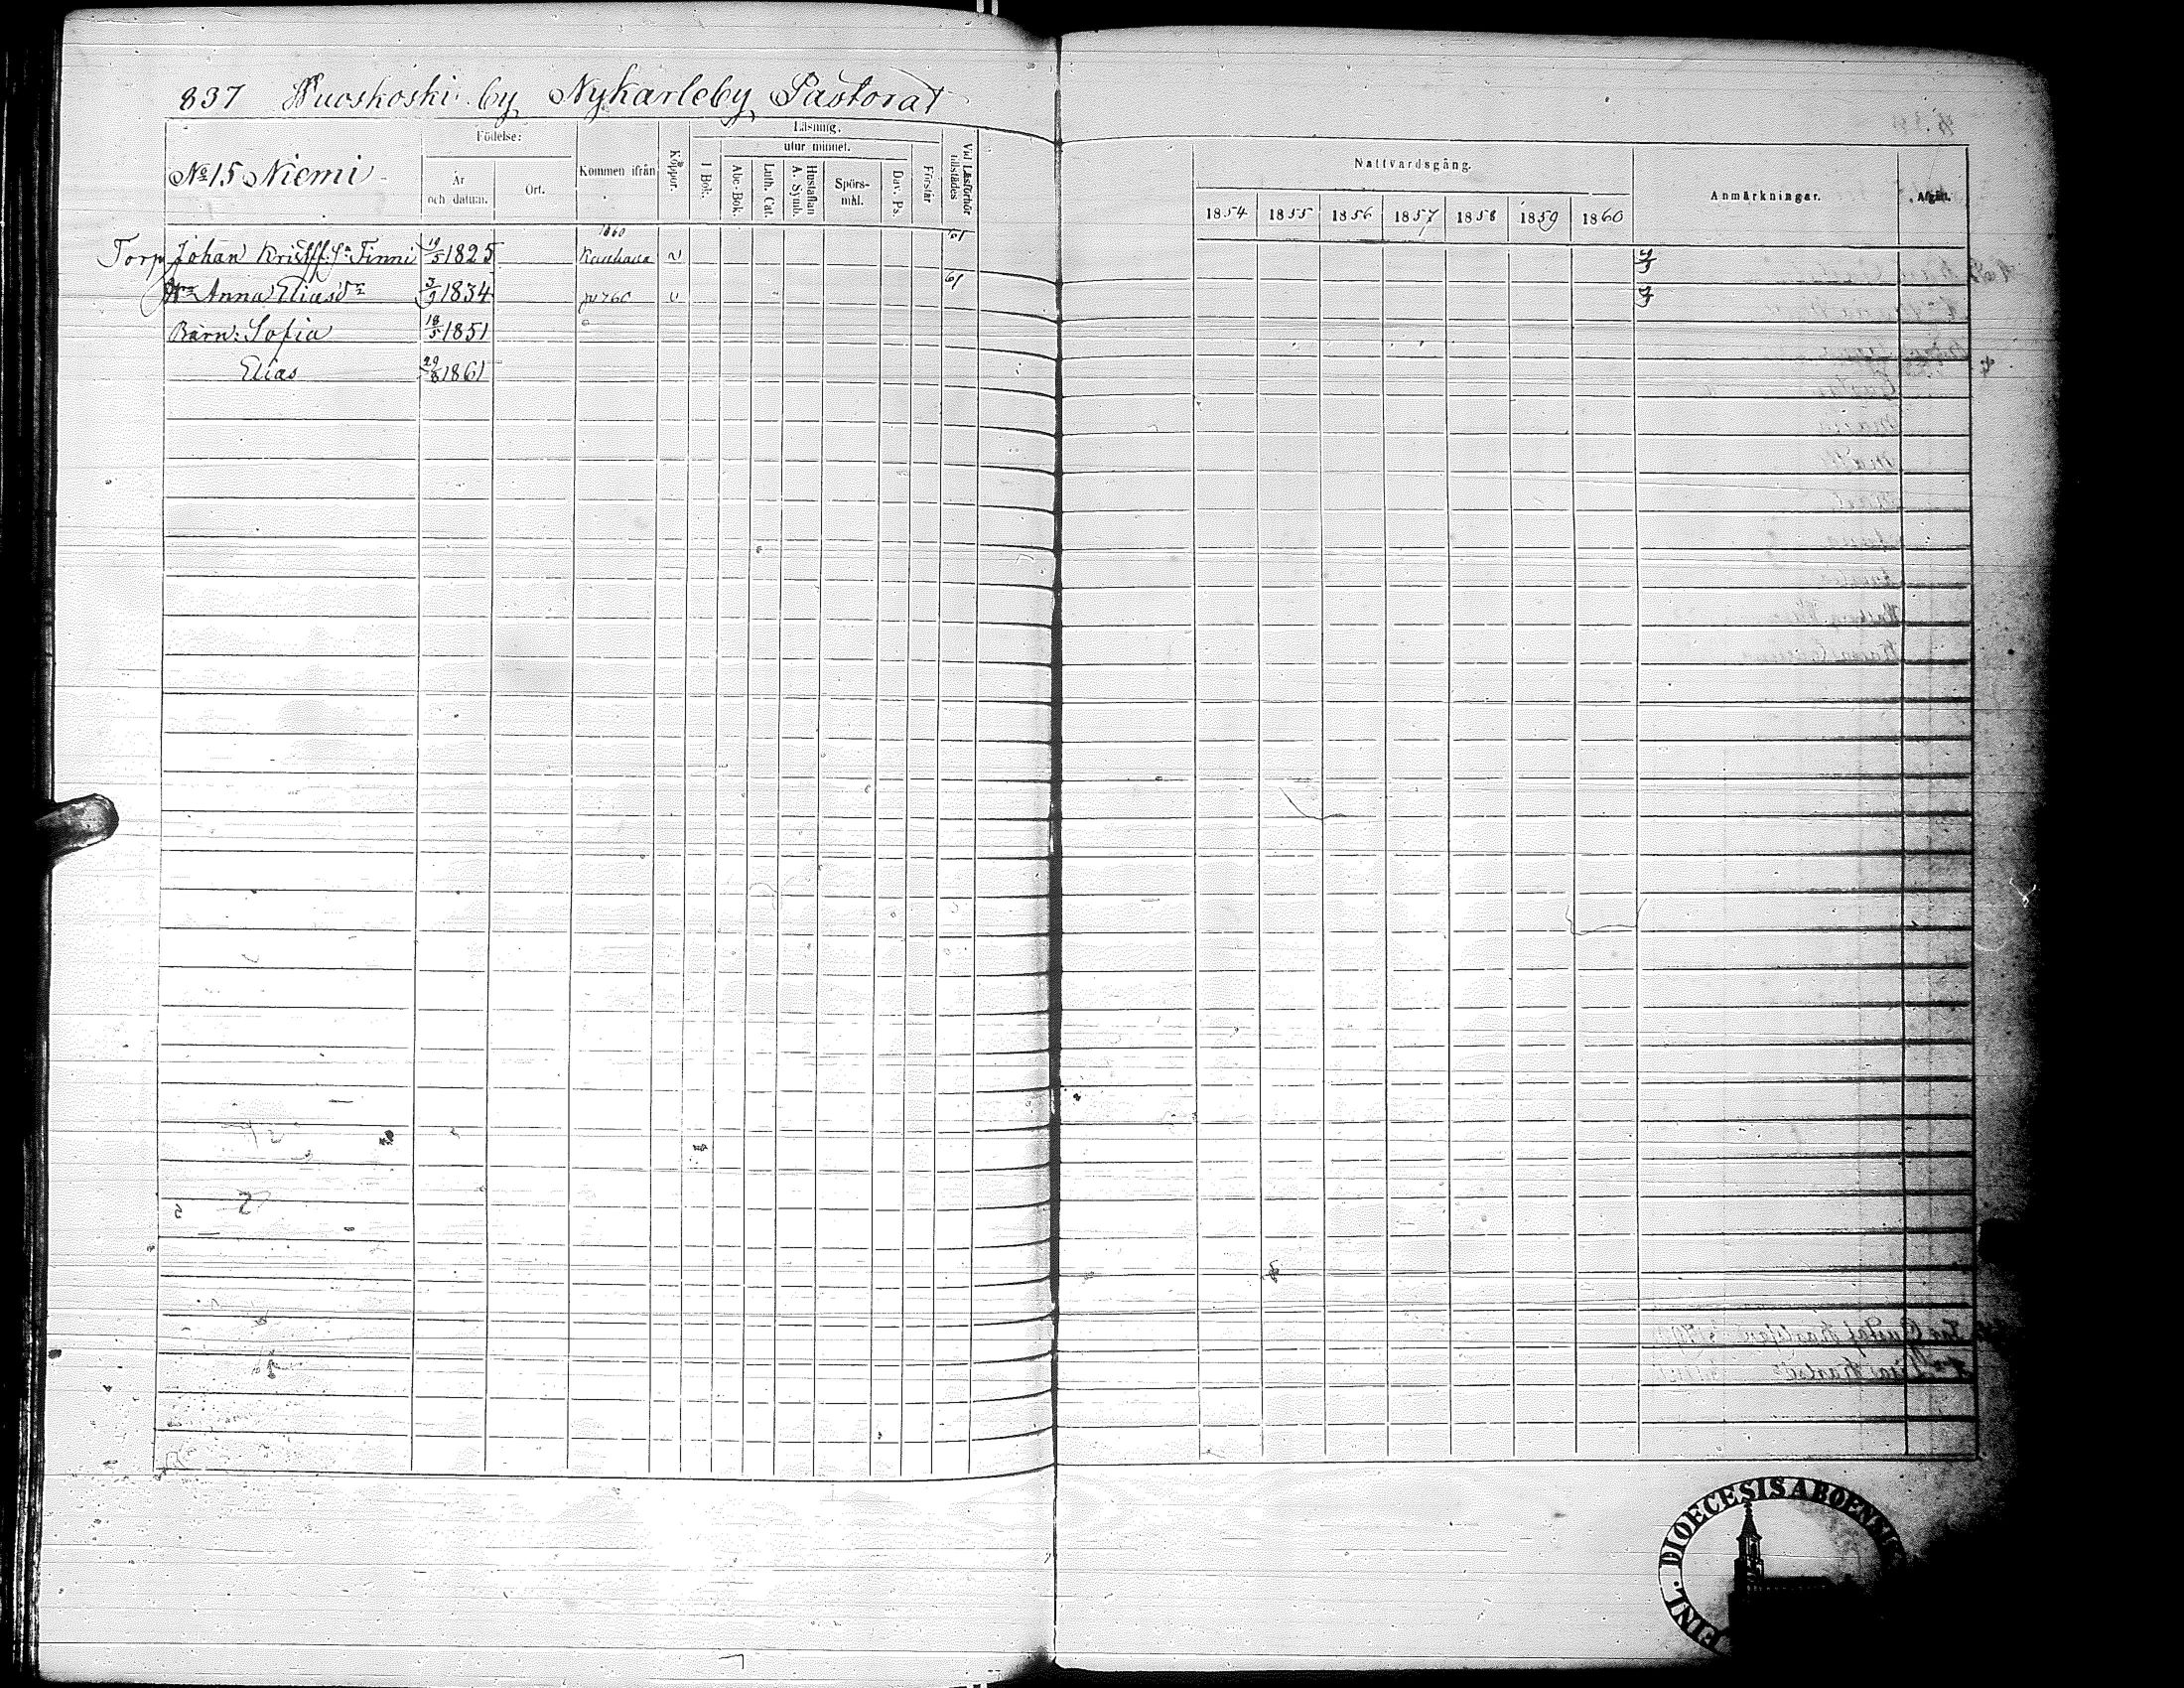 837 Wuoskoski by Nykarleby Pastorat
Födelse:
Läsning.
utur minnet.
Nattvardsgång.
№ 15 Niemi
År och datum.
Ort.
Kommen ifrån
Koppor.
I Bok.
Abc-Bok.
Luth. Cat.
Hustaflan A. Symb.
Spörsmål.
Dav. Ps.
Förstår
Vid Läsförhör tillstädes
1854 1855 1856 1857 1858 1859 1860
Anmärkningar.
Afgått.
1860
61
Torp Johan Krist:ff:Sn Finni 19/5 1825
Hu Anna Eliasdr 3/9 1834 61
Barn: Sofia 18/5 1851
Elias 29/8 1861
FINL. DIOECESIS ABOENSIS